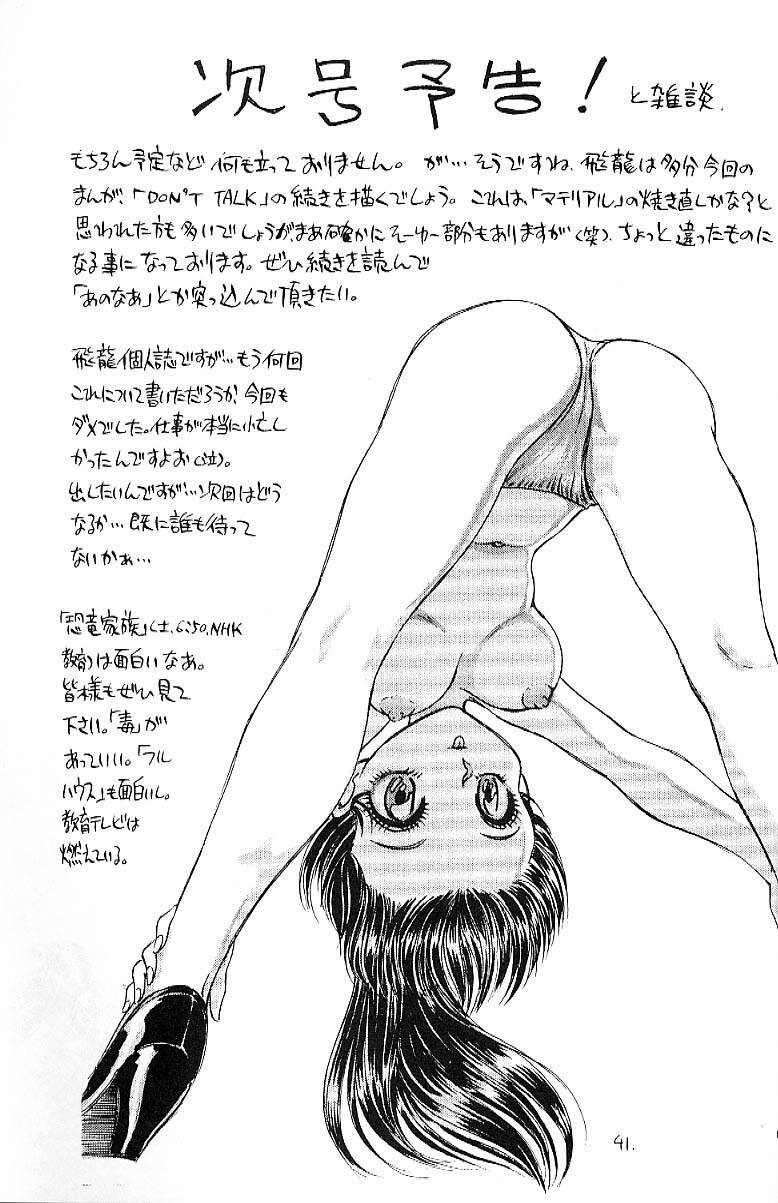 次号予告！と雑談．
もちろん予定など何も立っておりません。が…そうですね、飛龍は多分今回の
まんが、「DON'T TALK」の続きを描くでしょう。これは、「マテリアル」の焼き直しかな？と
思われた方も多いでしょうが、まあ確かにそーゆー部分もありますが（笑）、ちょっと違ったものに
なる事になっております。ぜひ続きを読んで
「あのなぁ」とか突っ込んで頂きたい。
飛龍個人誌ですが…もう何回
これについて書いただろうか、今回も
ダメでした。仕事が本当に忙し
かったんですよお（泣）。
出したいんですが…次回はどう
なるか…既に誰も待って
ないかぁ…
「恐竜家族」（土.6:50.NHK
教育）は面白いなあ。
皆様もぜひ見て
下さい。「毒」が
あっていい。「フル
ハウス」も面白いし。
教育テレビは
燃えている。
41.